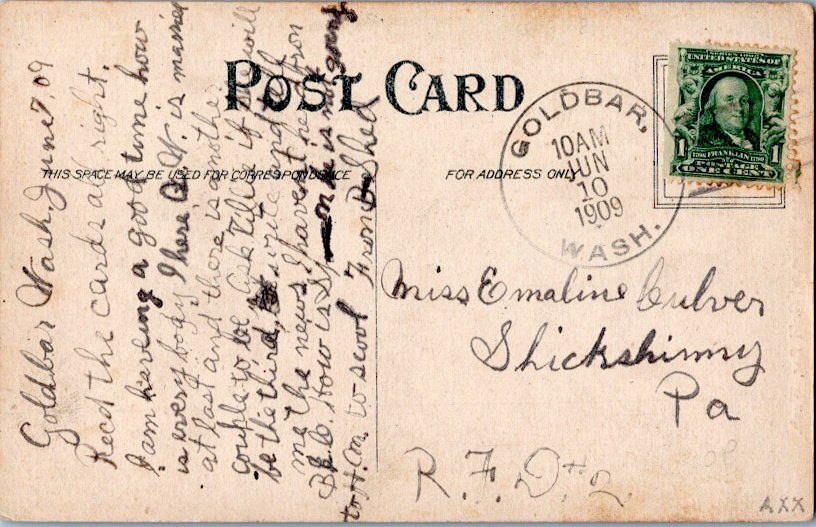 POST CARD
THIS SPACE MAY BE USED FOR CORRESPONDENCE
FOR ADDRESS ONLY
GOLDBAR,
10 AM
JUN
10
1909
WASH.
UNITED STATES OF
AMERICA
1 FRANKLIN 1
POSTAGE
ONE CENT
Goldbar Wash, June 09
Recd the cards all right.
I am haveing a good time how
is every body I here W. is married
at last and there is another
couple to be ask Tillie if she will
be the third, write and tell
me the news I havent he from
How is not going
to H. to scool From
Miss Emaline Culver
Shickshinny
Pa
R. F. D # 2
AXX